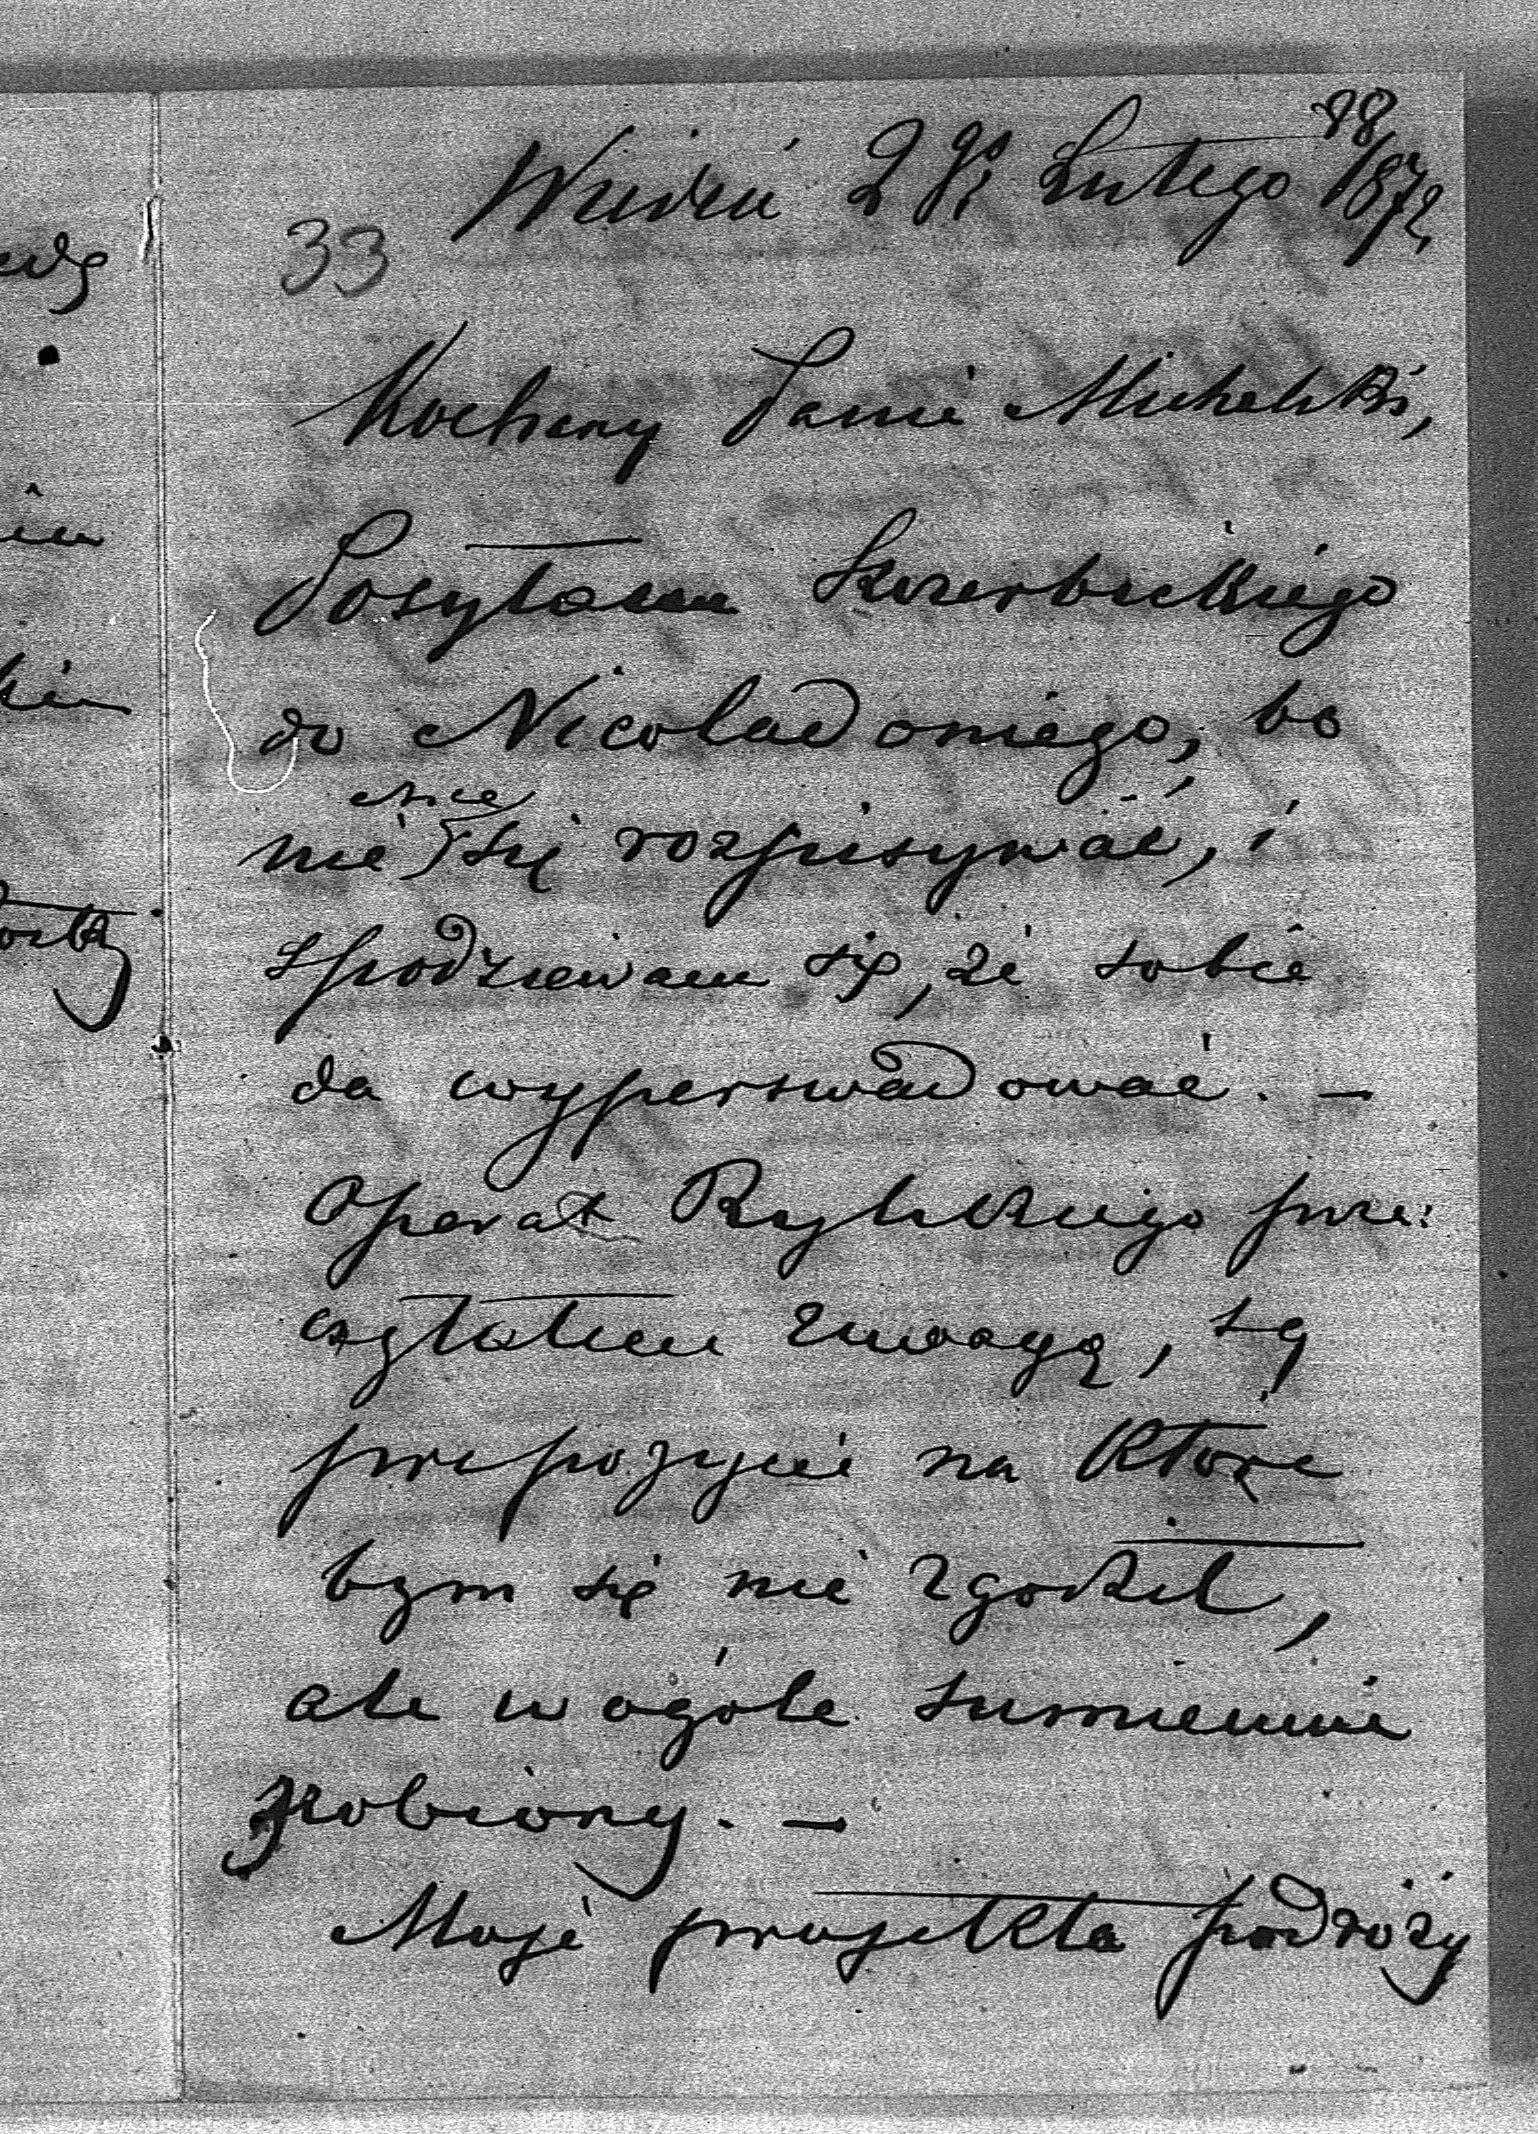 88
Wiedeń 2go Lutego 1872
33
Kochany Panie Michalski,
Posyłam Skrzerbickiego
do Nicoladoniego, bo
nie chcę się rozpisywać, i
spodziewam się, że sobie
da wyperswadować. –
Operat Rylskiego prze:
czytałem z uwagą, są
propozycie na które
bym się nie zgodził,
ale w ogóle sumiennie
zrobiony. –
Moje projekta podróży